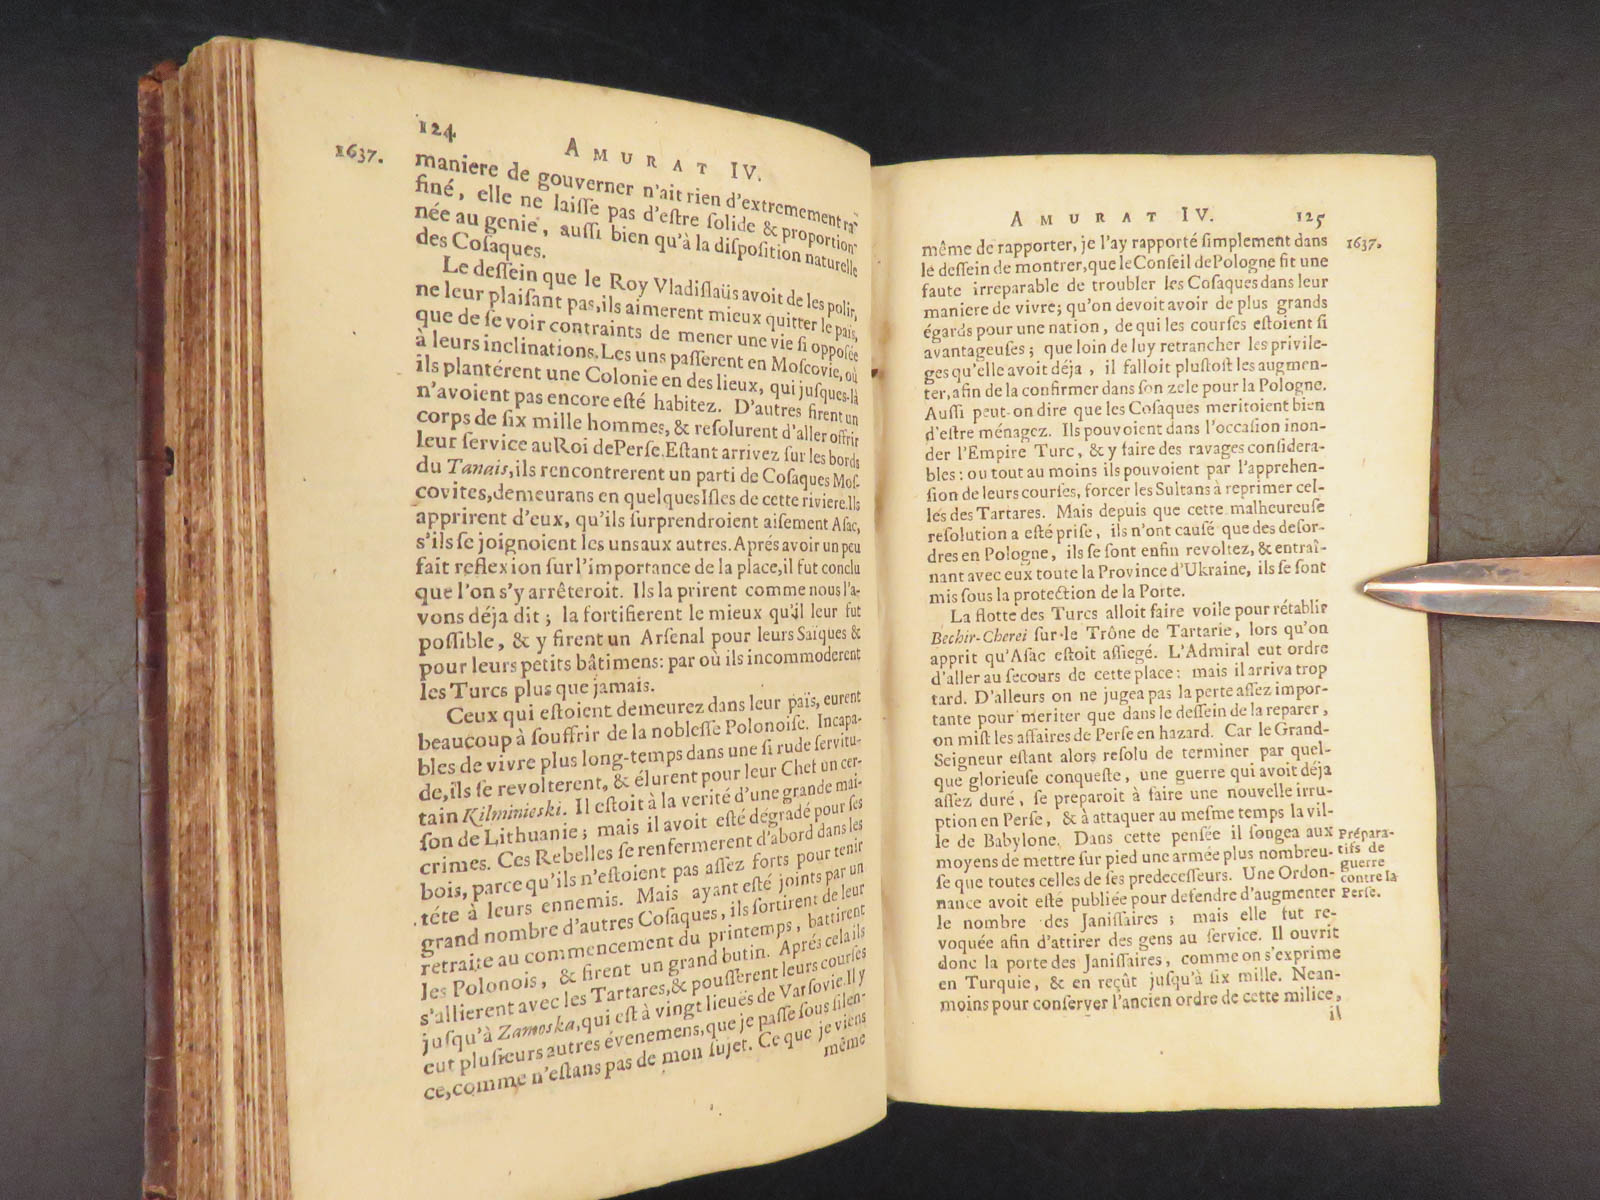 124
AMURAT IV.
1637.
maniere de gouverner n'ait rien d'extremement raf-
finé, elle ne laisse pas d'estre solide & proportion-
née au genie, aussi bien qu'à la disposition naturelle
des Cosaques.
Le dessein que le Roy Vladislaüs avoit de les polir,
ne leur plaisant pas, ils aimerent mieux quitter le païs,
que de se voir contraints de mener une vie si opposée
à leurs inclinations. Les uns passerent en Moscovie, où
ils plantérent une Colonie en des lieux, qui jusques-là
n'avoient pas encore esté habitez. D'autres firent un
corps de six mille hommes, & resolurent d'aller offrir
leur service au Roi de Perse. Estant arrivez sur les bords
du Tanais, ils rencontrerent un parti de Cosaques Mos-
covites, demeurans en quelques Isles de cette riviere. Ils
apprirent d'eux, qu'ils surprendroient aisement Asac,
s'ils se joignoient les uns aux autres. Aprés avoir un peu
fait reflexion sur l'importance de la place, il fut conclu
que l'on s'y arrêteroit. Ils la prirent comme nous l'a-
vons déja dit ; la fortifierent le mieux qu'il leur fut
possible, & y firent un Arsenal pour leurs Saïques &
pour leurs petits bâtimens : par où ils incommoderent
les Turcs plus que jamais.
Ceux qui estoient demeurez dans leur païs, eurent
beaucoup à souffrir de la noblesse Polonoise. Incapa-
bles de vivre plus long-temps dans une si rude servitu-
de, ils se revolterent, & élurent pour leur Chef un cer-
tain Kilminieski. Il estoit à la verité d'une grande mai-
son de Lithuanie ; mais il avoit esté dégradé pour ses
crimes. Ces Rebelles se renfermerent d'abord dans les
bois, parce qu'ils n'estoient pas assez forts pour tenir
téte à leurs ennemis. Mais ayant esté joints par un
grand nombre d'autres Cosaques, ils sortirent de leur
retraite au commencement du printemps, battirent
les Polonois, & firent un grand butin. Aprés cela ils
s'allierent avec les Tartares, & poussèrent leurs courses
jusqu'à Zamoska, qui est à vingt lieuës de Varsovie. Il y
eut plusieurs autres évenemens, que je passe sous silen-
ce, comme n'estans pas de mon sujet. Ce que je viens
même
AMURAT IV. 125
1637.
même de rapporter, je l'ay rapporté simplement dans
le dessein de montrer, que le Conseil de Pologne fit une
faute irreparable de troubler les Cosaques dans leur
maniere de vivre ; qu'on devoit avoir de plus grands
égards pour une nation, de qui les courses estoient si
avantageuses ; que loin de luy retrancher les privile-
ges qu'elle avoit déja, il falloit plustost les augmen-
ter, afin de la confirmer dans son zele pour la Pologne.
Aussi peut-on dire que les Cosaques meritoient bien
d'estre ménagez. Ils pouvoient dans l'occasion inon-
der l'Empire Turc, & y faire des ravages considera-
bles : ou tout au moins ils pouvoient par l'apprehen-
sion de leurs courses, forcer les Sultans à reprimer cel-
les des Tartares. Mais depuis que cette malheureuse
resolution a esté prise, ils n'ont causé que des desor-
dres en Pologne, ils se sont enfin revoltez, & entraî-
nant avec eux toute la Province d'Ukraine, ils se sont
mis sous la protection de la Porte.
La flotte des Turcs alloit faire voile pour rétablir
Bechir-Cherei sur le Trône de Tartarie, lors qu'on
apprit qu'Asac estoit assiegé. L'Admiral eut ordre
d'aller au secours de cette place : mais il arriva trop
tard. D'alleurs on ne jugea pas la perte assez impor-
tante pour meriter que dans le dessein de la reparer,
on mist les affaires de Perse en hazard. Car le Grand-
Seigneur estant alors resolu de terminer par quel-
que glorieuse conqueste, une guerre qui avoit déja
assez duré, se preparoit à faire une nouvelle irru-
ption en Perse, & à attaquer au mesme temps la vil-
le de Babylone. Dans cette pensée il songea aux
moyens de mettre sur pied une armée plus nombreu-
se que toutes celles de ses predecesseurs. Une Ordon-
nance avoit esté publiée pour defendre d'augmenter
le nombre des Janissaires ; mais elle fut re-
voquée afin d'attirer des gens au service. Il ouvrit
donc la porte des Janissaires, comme on s'exprime
en Turquie, & en reçût jusqu'à six mille. Nean-
moins pour conserver l'ancien ordre de cette milice,
il
Prépara-
tifs de
guerre
contre la
Perse.